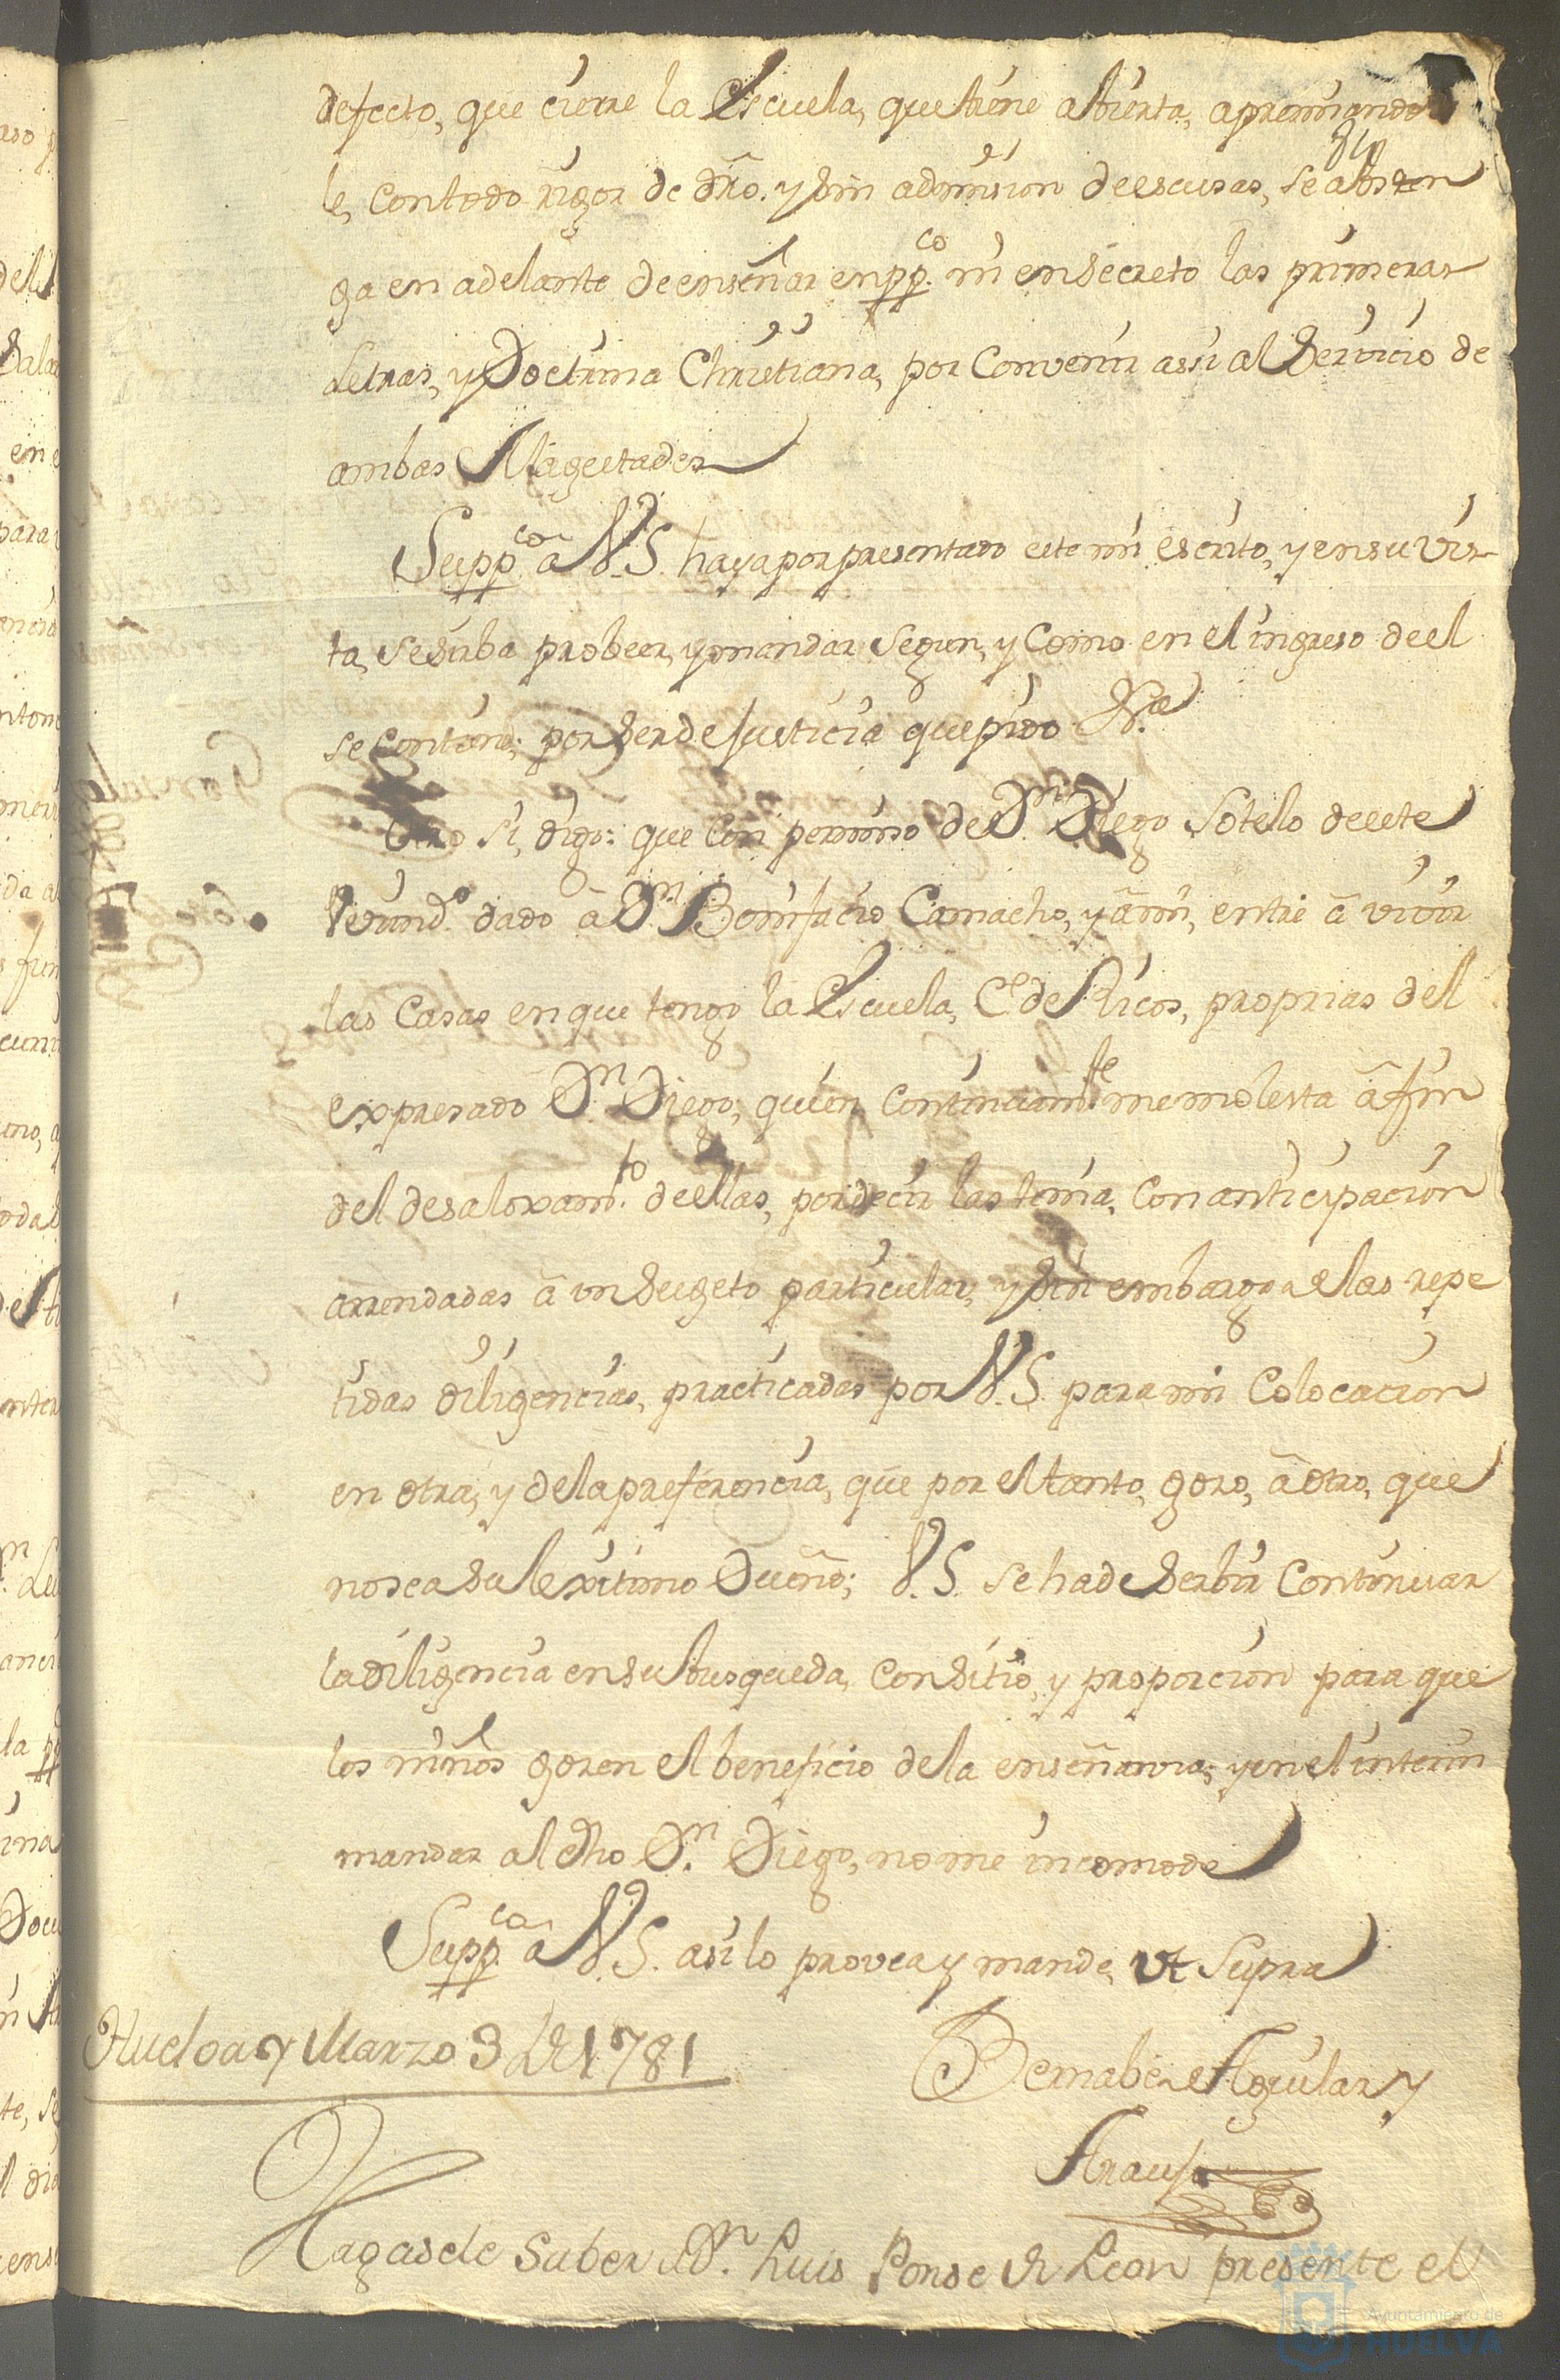 defecto, que cierre la Escuela, que tiene abierta, apremiando
le, con todo rigor de dro. y sin admision de escusas, se absten
ga en adelante de enseñar en ppco. ni en secreto las primeras
Letras, y Doctrina Christiana, por Convenir assi al Servicio de
ambas Magestades
Suppco. â V.S. haya por presentado este mi escrito, y en su vis-
ta, se sirba probeer, y mandar segun, y Como en el ingreso de el
se contiene; por ser de Justicia que pido &a.
Otro si, digo: que con permiso de Dn. Diego Sotelo de este
Vecind.º dado â Dn. Bonifacio Camacho, y â mi, entré â vivir
las Casas en que tengo la Escuela, Ce. de Ricos, proprias del
expresado Dn. Diego, quien continuamte. me molesta â fin
del desaloxamto. de ellas, por decir las tenia, con anticipacion
arrendadas â un sugeto particular, y sin embargo de las repe
tidas diligencias, practicadas por V.S. para mi Colocacion
en otra, y de la preferencia, que por el tanto, gozo, â otro, que
no sea su lexitimo Dueño; V.S. se ha de serbir Continuar
la diligencia en su busqueda, con sitio, y proporcion para que
los niños gozen el beneficio de la enseñanza; y en el interin
mandar al dho Dn. Diego, no me incomode
Suppco. â V.S. asi lo provea y mande, ut supra
Huelva y Marzo 3 de 1781
Bernabé Aguilar y
Arauso
Hagasele saber a Dn. Luis Ponse de Leon presente el
Ayuntamiento de
HUELVA